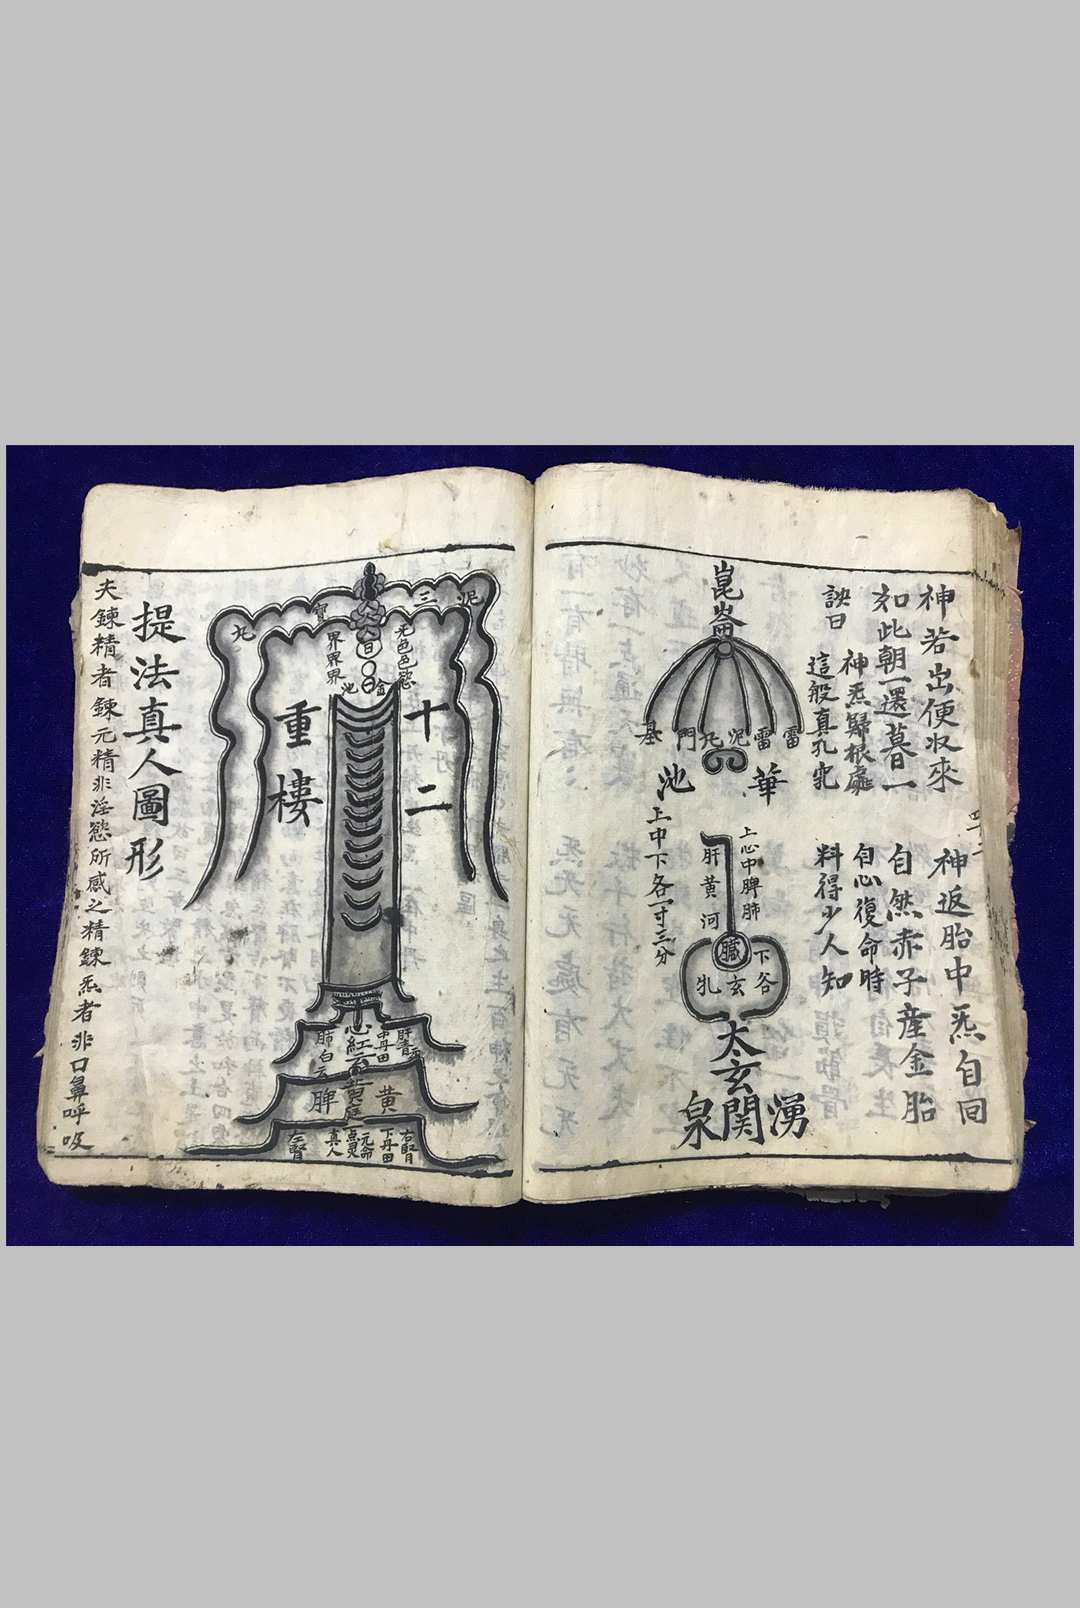 神若出便收來
神返胎中炁自回
如此朝一還暮一
自然赤子産金胎
訣曰
神炁歸根處
自心復命時
這般真孔竅
料得少人知
崑崙
雷雷泥丸門基
華池
上心中脾肺
肝黃河
上中下各一寸三分
臟
下谷
玄
太玄關
湧泉
泥
三
寳
丸
无色色慾
界界界
金
池
十二
重樓
心紅
中丹田
肺白
黃庭
脾
黃
右腎
下丹田
元命
真人
左腎
提法真人圖形
夫鍊精者鍊元精非淫慾所感之精鍊炁者非口鼻呼吸